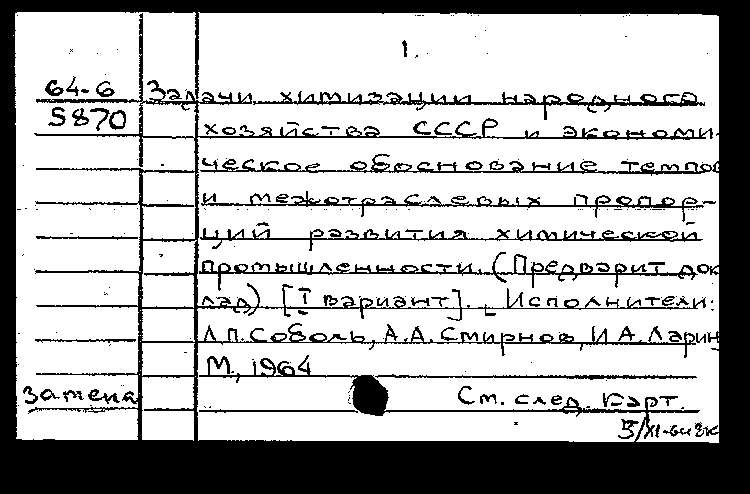 1.
64-6 Задачи химизации народного
5870 хозяйства СССР и экономи-
ческое обоснование темпов
и межотраслевых пропор-
ций развития химической
промышленности. (Предварит док
лад). [I вариант]. Исполнители:
Л.П. Соболь, А.А. Смирнов, И.А. Ларин
М., 1964
См. след. карт.